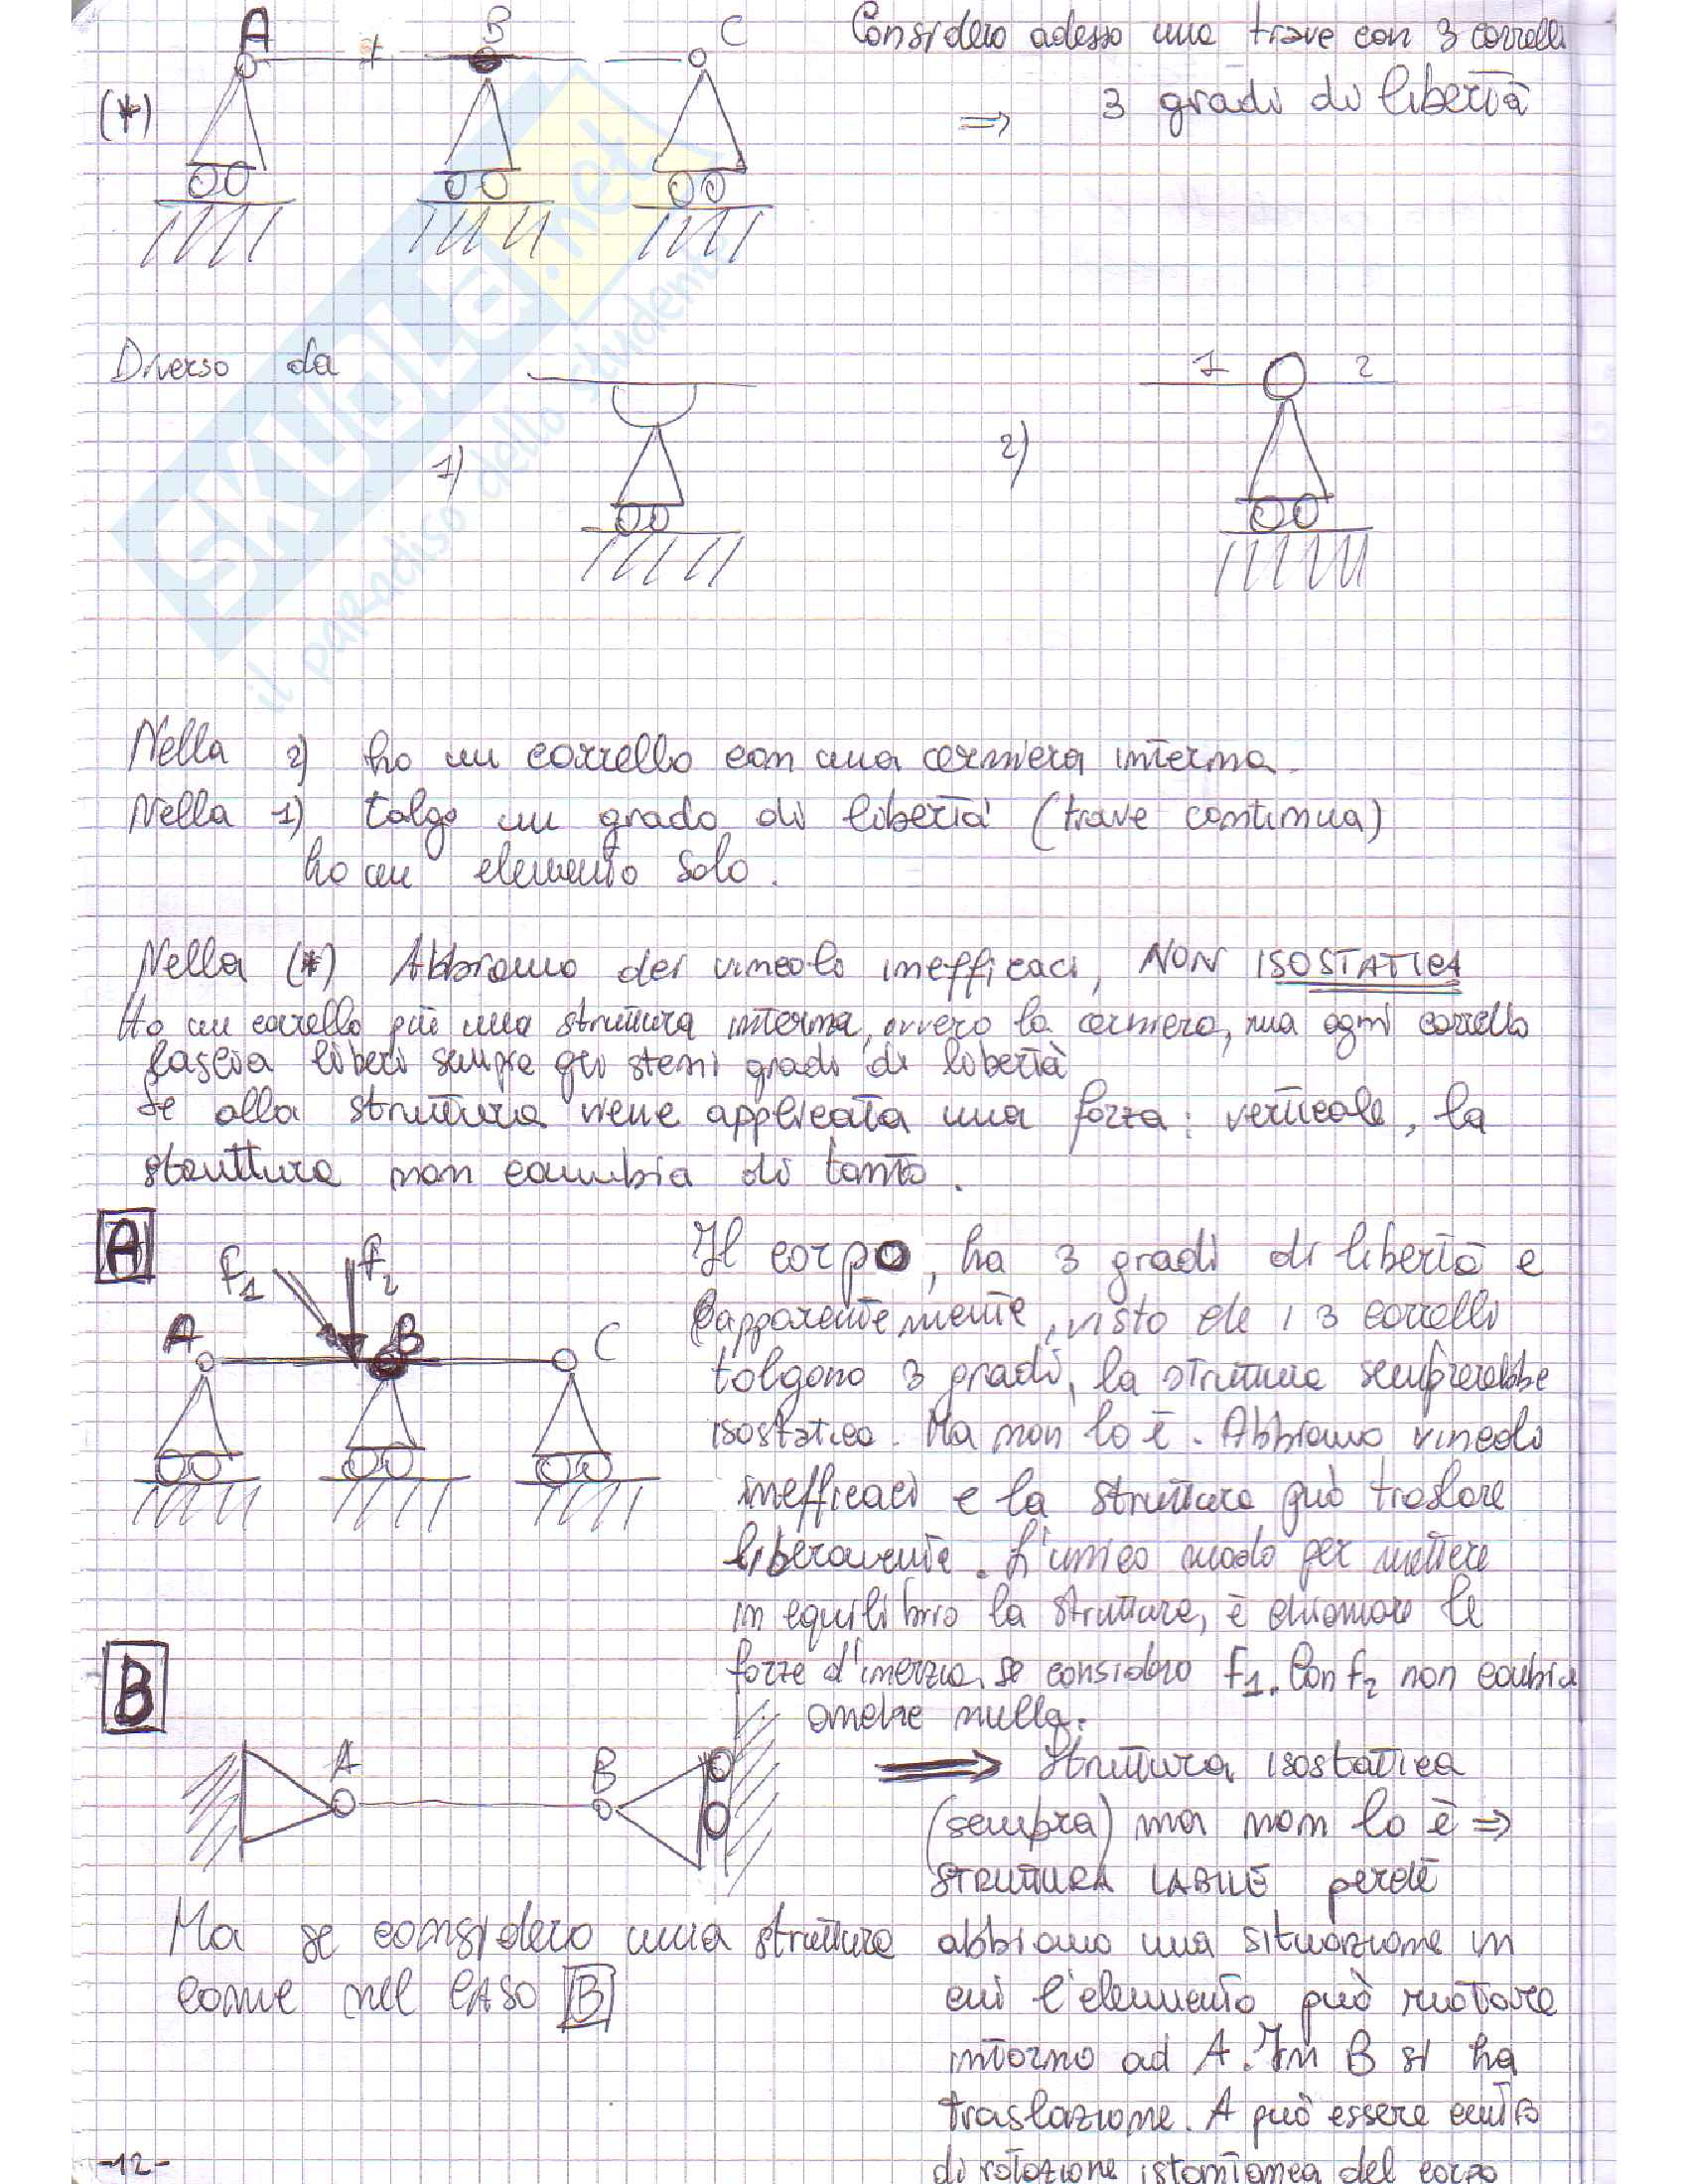 A + B C Considero adesso una trave con 3 carrelli
(*) => 3 gradi di libertà
Diverso da
1) 2) 1 2
Nella 2) ho un carrello con una cerniera interna.
Nella 1) tolgo un grado di libertà (trave continua)
ho un elemento solo.
Nella (*) Abbiamo dei vincoli inefficaci, NON ISOSTATICA
Ho un carrello più una struttura interna, ovvero la cerniera, ma ogni carrello
lascia liberi sempre gli stessi gradi di libertà
Se alla struttura viene applicata una forza: verticale, la
struttura non cambia di tanto.
A
F1 F2
A B C
Il corpo, ha 3 gradi di libertà e
apparentemente, visto che i 3 carrelli
tolgono 3 gradi, la struttura sembrerebbe
isostatica. Ma non lo è. Abbiamo vincoli
inefficaci e la struttura può traslare
liberamente. L'unico modo per mettere
in equilibrio la struttura, è chiamare le
forze d'inerzia se considero F1. Con F2 non cambia
anche nulla.
B
A B
=> Struttura isostatica
(sembra) ma non lo è =>
STRUTTURA LABILE perchè
Ma se considero una struttura
come nel CASO B
abbiamo una situazione in
cui l'elemento può ruotare
intorno ad A. In B si ha
traslazione. A può essere centro
di rotazione istantanea del corpo
-12-
SKUOLA.net
il paradiso dello studente